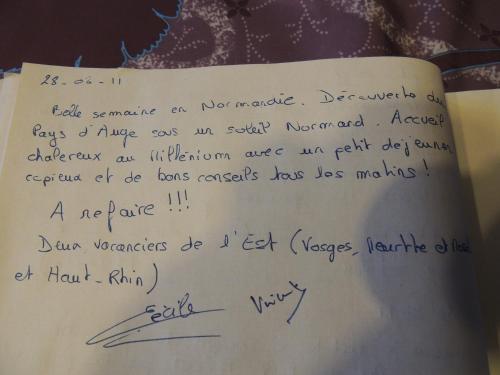 28-06-11
Belle semaine en Normandie. Découverte du
Pays d'Auge sous un soleil Normand. Accueil
chalereux au Millénium avec un petit déjeuner
copieux et de bons conseils tous les matins !
A refaire !!!
Deux vacanciers de l'Est (Vosges, Meurthe et
et Haut-Rhin)
Cécile